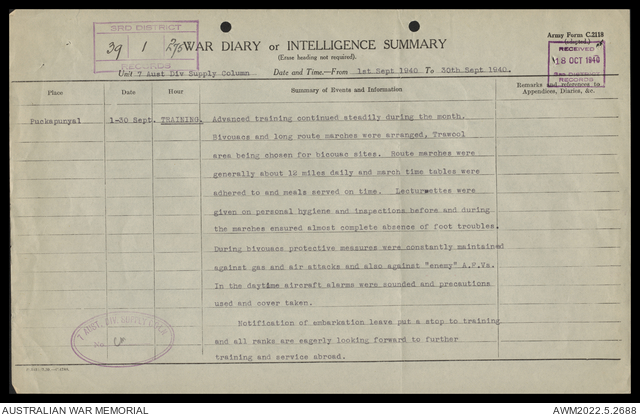 3RD DISTRICT
39 | 1 | 295
RECORDS
WAR DIARY or INTELLIGENCE SUMMARY
(Erase heading not required).
Army Form C.2118
(adapted.)
RECEIVED
18 OCT 1940
3RD DISTRICT
RECORDS
Unit 7 Aust Div Supply Column Date and Time.—From 1st Sept 1940. To 30th Sept 1940.
Place Date Hour Summary of Events and Information Remarks and references to
Appendices, Diaries, &c.
Puckapunyal 1-30 Sept. TRAINING. Advanced training continued steadily during the month.
Bivouacs and long route marches were arranged, Trawool
area being chosen for bicouac sites. Route marches were
generally about 12 miles daily and march time tables were
adhered to and meals served on time. Lecturettes were
given on personal hygiene and inspections before and during
the marches ensured almost complete absence of foot troubles.
During bivouacs protective measures were constantly maintained
against gas and air attacks and also against "enemy" A.F.Vs.
In the daytime aircraft alarms were sounded and precautions
used and cover taken.
Notification of embarkation leave put a stop to training
and all ranks are eagerly looking forward to further
training and service abroad.
7 AUST. DIV. SUPPLY COLUMN
No.
AUSTRALIAN WAR MEMORIAL
AWM2022.5.2688